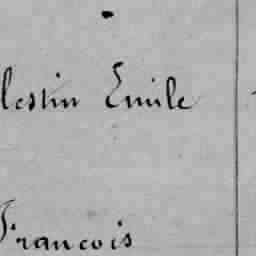 lestin Emile
Francois